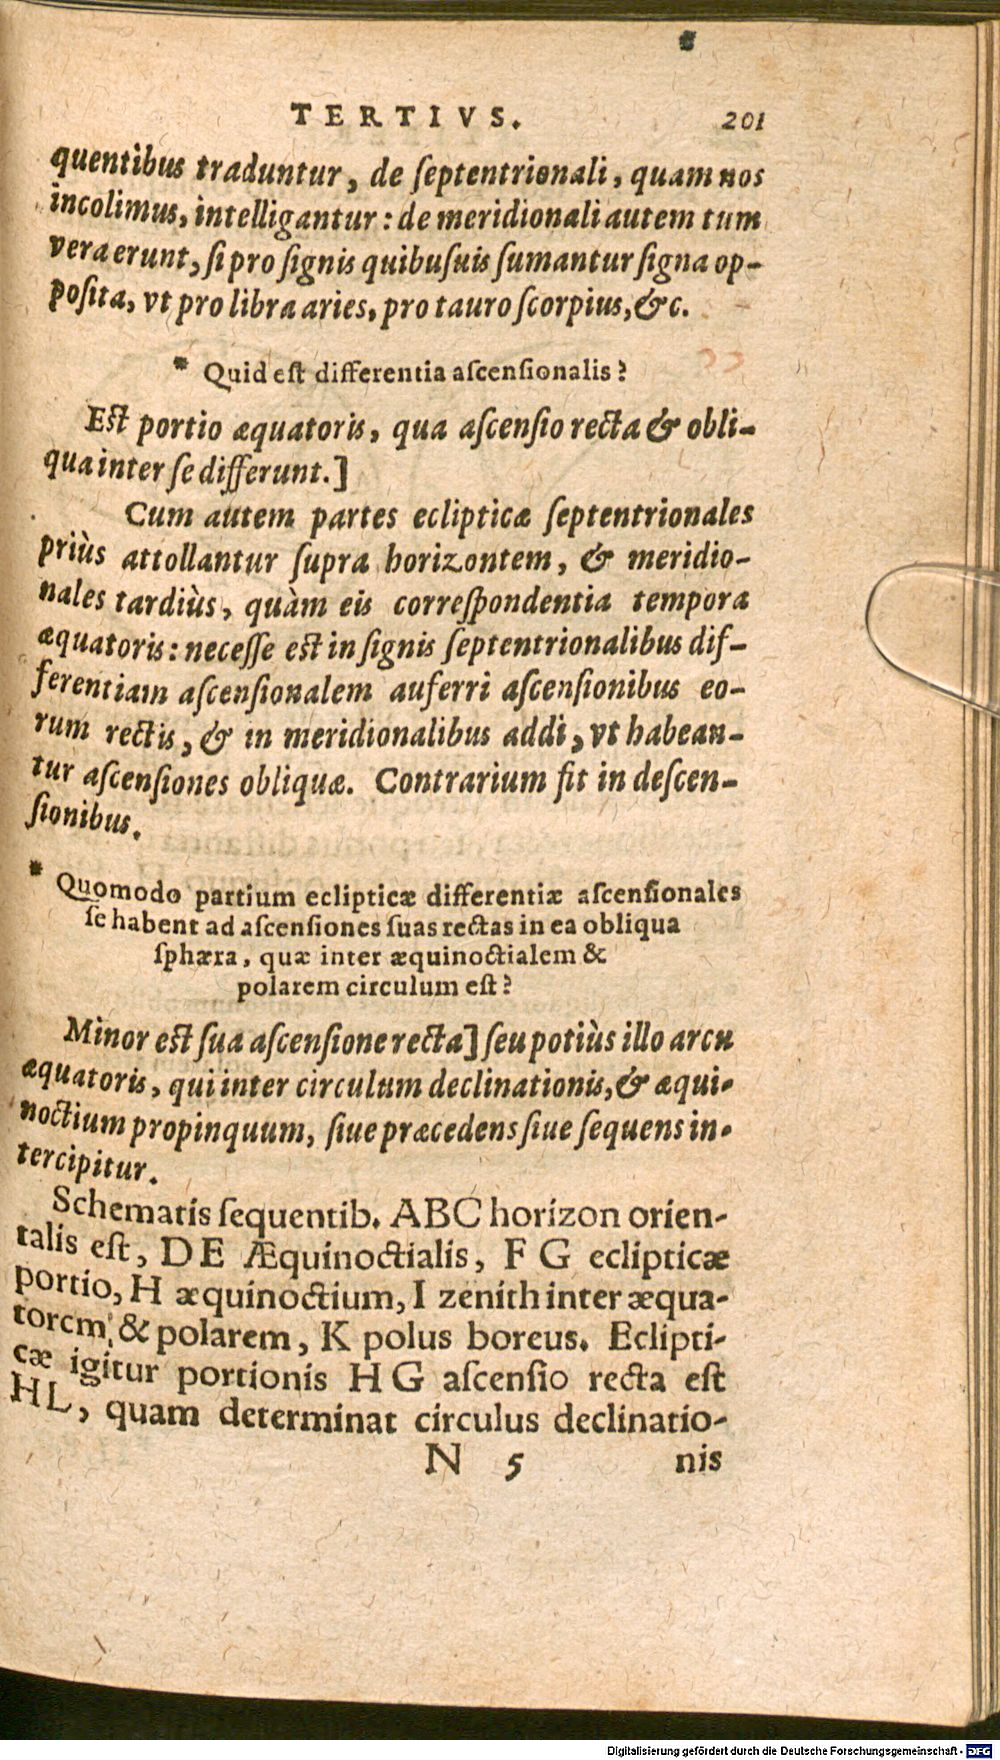 TERTIVS. 201
quentibus traduntur, de ſeptentrionali, quam nos
incolimus, intelligantur: de meridionali autem tum
vera erunt, ſi pro ſignis quibuſuis ſumantur ſigna op-
poſita, vt pro libra aries, pro tauro ſcorpius, &c.
* Quid eſt differentia aſcenſionalis?
Eſt portio æquatoris, qua aſcenſio recta & obli-
qua inter ſe differunt.]
Cum autem partes eclipticæ ſeptentrionales
priùs attollantur ſupra horizontem, & meridio-
nales tardiùs, quàm eis correſpondentia tempora
æquatoris: neceſſe eſt in ſignis ſeptentrionalibus dif-
ferentiam aſcenſionalem auferri aſcenſionibus eo-
rum rectis, & in meridionalibus addi, vt habean-
tur aſcenſiones obliquæ. Contrarium fit in deſcen-
ſionibus.
* Quomodo partium eclipticæ differentiæ aſcenſionales
ſe habent ad aſcenſiones ſuas rectas in ea obliqua
ſphæra, quæ inter æquinoctialem &
polarem circulum eſt?
Minor eſt ſua aſcenſione recta] ſeu potiùs illo arcu
æquatoris, qui inter circulum declinationis, & æqui-
noctium propinquum, ſiue præcedens ſiue ſequens in-
tercipitur.
Schematis ſequentib. ABC horizon orien-
talis eſt, DE Æquinoctialis, F G eclipticæ
portio, H æquinoctium, I zenith inter æqua-
torem, & polarem, K polus boreus. Eclipti-
cæ igitur portionis HG aſcenſio recta eſt
HL, quam determinat circulus declinatio-
N 5 nis
Digitalisierung gefördert durch die Deutsche Forschungsgemeinschaft - DFG